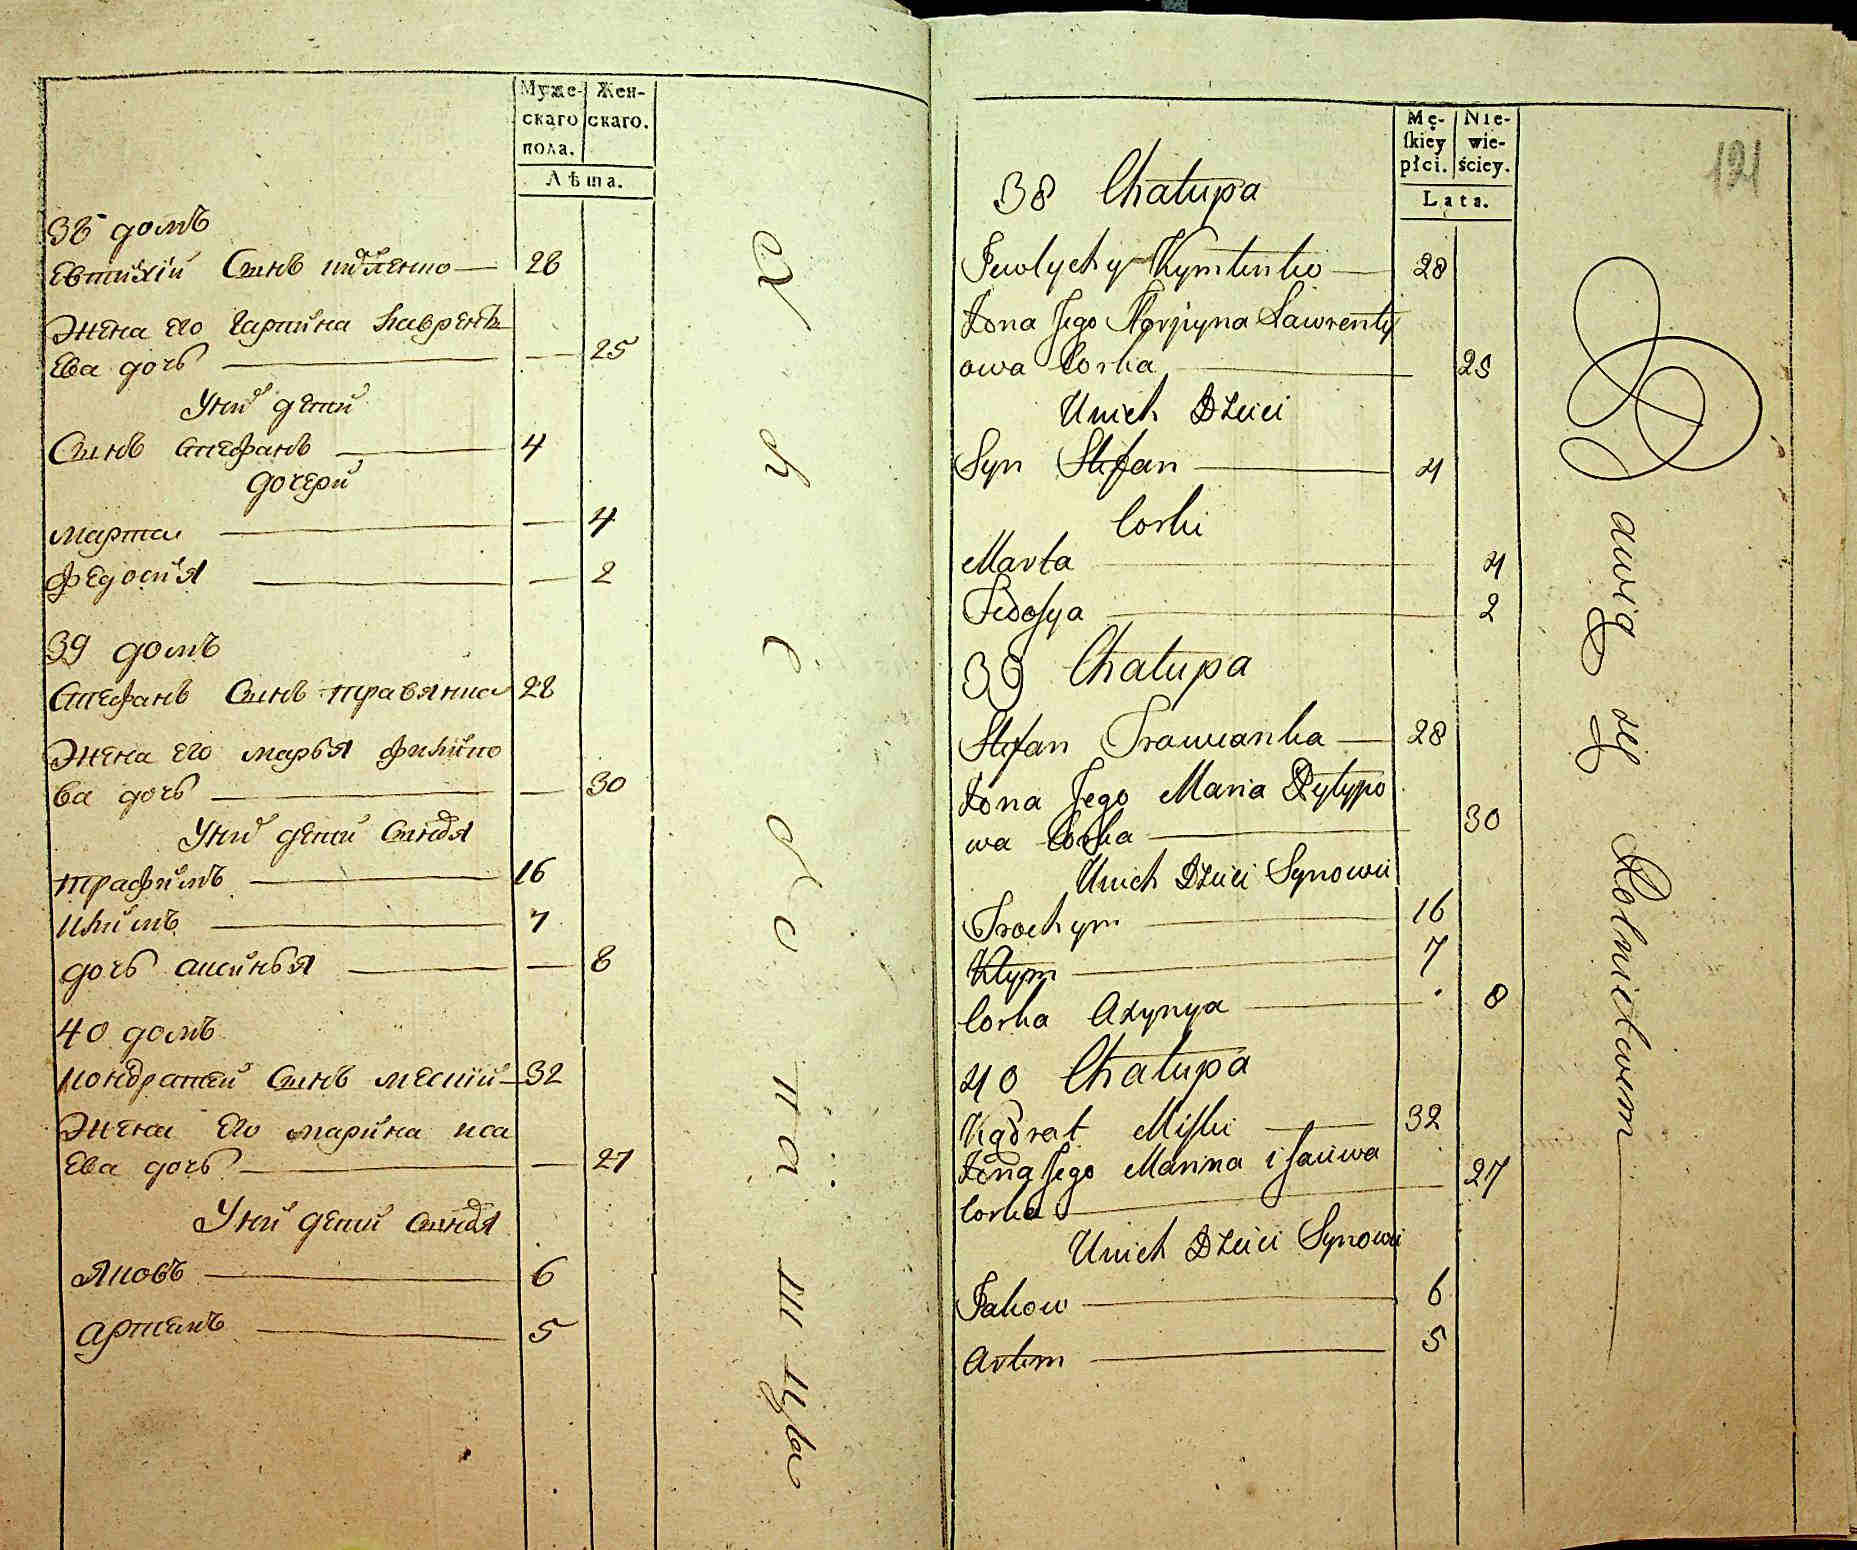 Муже-
скаго
пола.
Жен-
скаго.
Лѣта.
38 домъ
Евтихiй Сынъ 28
Жена его Гарпина Лаврентъ
Ева дочь 25
У них детей
Сынъ Стефанъ 4
дочери
Марта 4
Федосия 2
39 домъ
Стефанъ Сынъ травянка 28
Жена его марья филипо
ва дочь 30
У них детей Сыновя
трафимъ 16
Климъ 7
дочь аксинья 8
40 домъ
кондратей Сынъ меский 32
Жена его марина иса
Ева дочь 27
У них детей Сыновя
Яковъ 6
Артемъ 5
Mę-
skiey
płci.
Nie-
wie-
ściey.
Lata.
191
38 Chałupa
Jewtychy 28
Żona Jego Horpyna Lawrenty
owa Corka 25
U nich Dzieci
Syn Stefan 4
Corki
Marta 4
Fedosya 2
39 Chałupa
Stefan Trawianka 28
Żona Jego Maria Pylypo
wa Corka 30
U nich Dzieci Synowie
Trochym 16
Kłym 7
Corka Axynya 8
40 Chałupa
Kądrat Miski 32
Żona Jego Marina isaiwa
Corka 27
U nich Dzieci Synowie
Jakow 6
Artem 5
awią się Rolnictwem